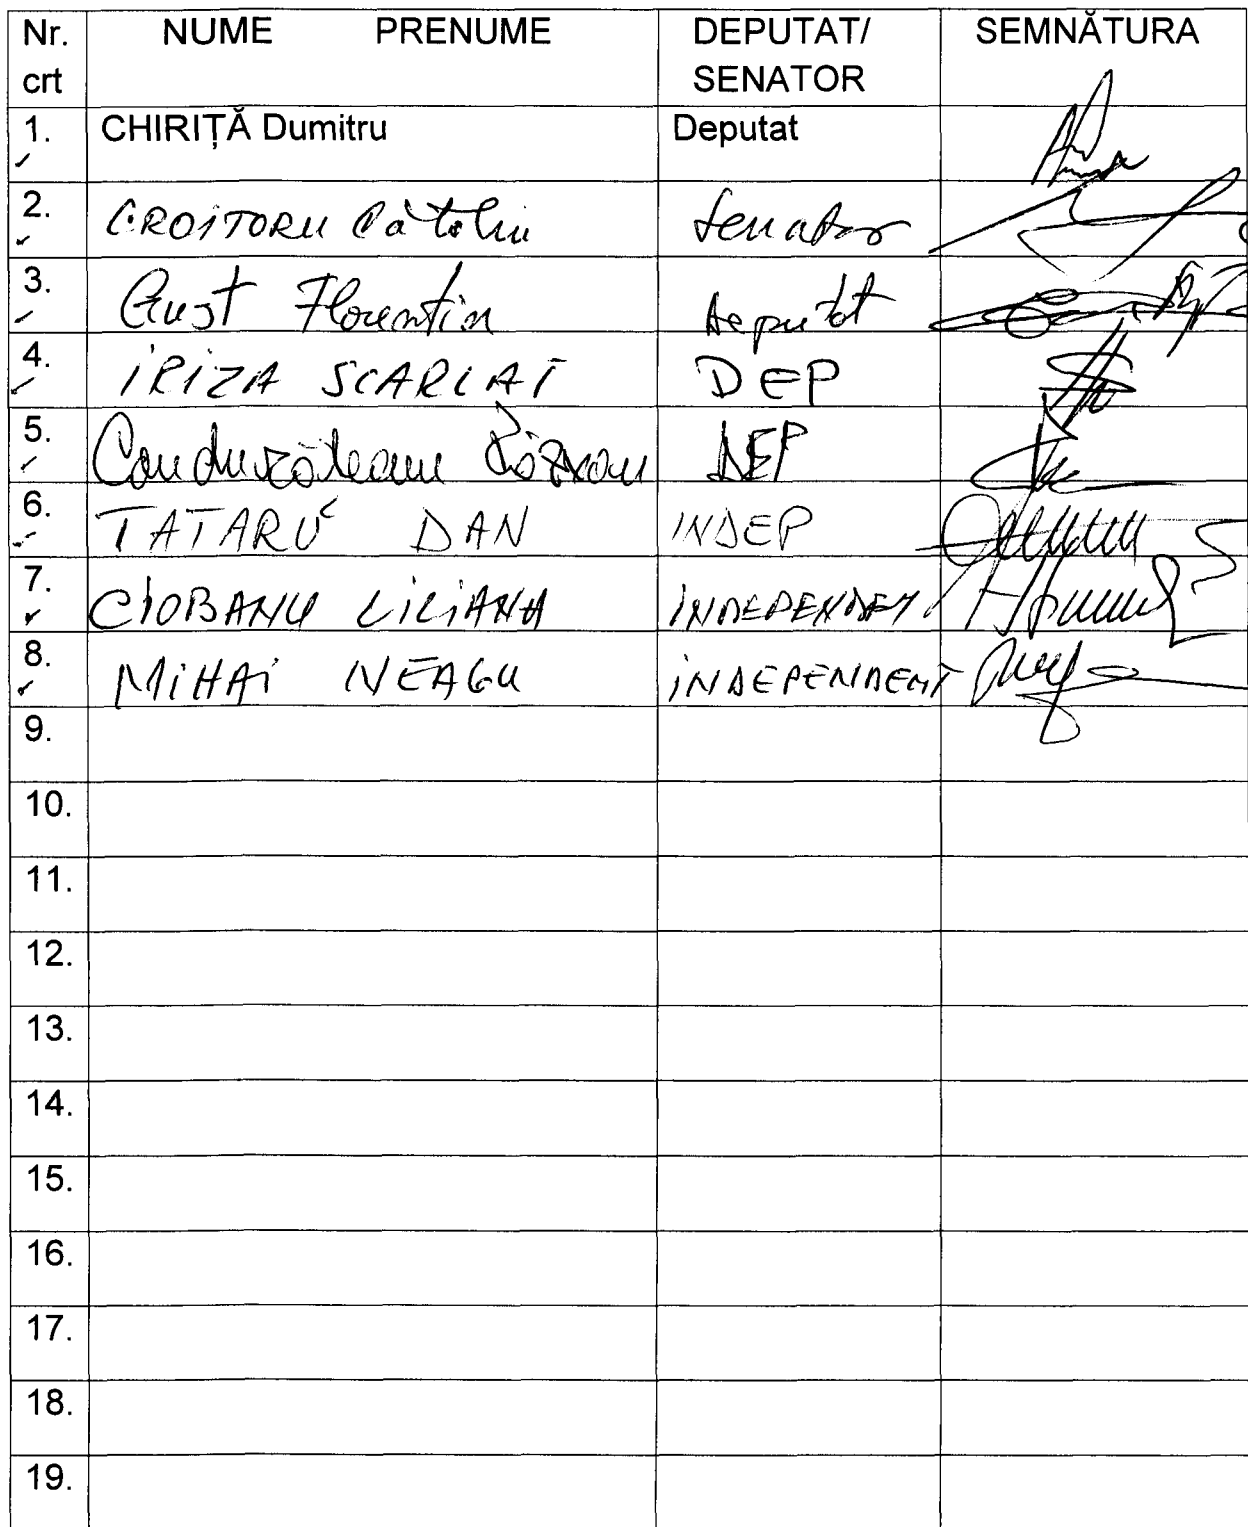 Nr. crt NUME PRENUME DEPUTAT/ SENATOR SEMNĂTURA
1. CHIRIȚĂ Dumitru Deputat
2. CROITORU Cătălin Senator
3. Gust Florentin Deputat
4. IRIZA SCARLAT DEP
5. Condurățeanu Răzvan DEP
6. TATARU DAN INDEP
7. CIOBANU LILIANA INDEPENDENT
8. MIHAI NEAGU INDEPENDENT
9.
10.
11.
12.
13.
14.
15.
16.
17.
18.
19.